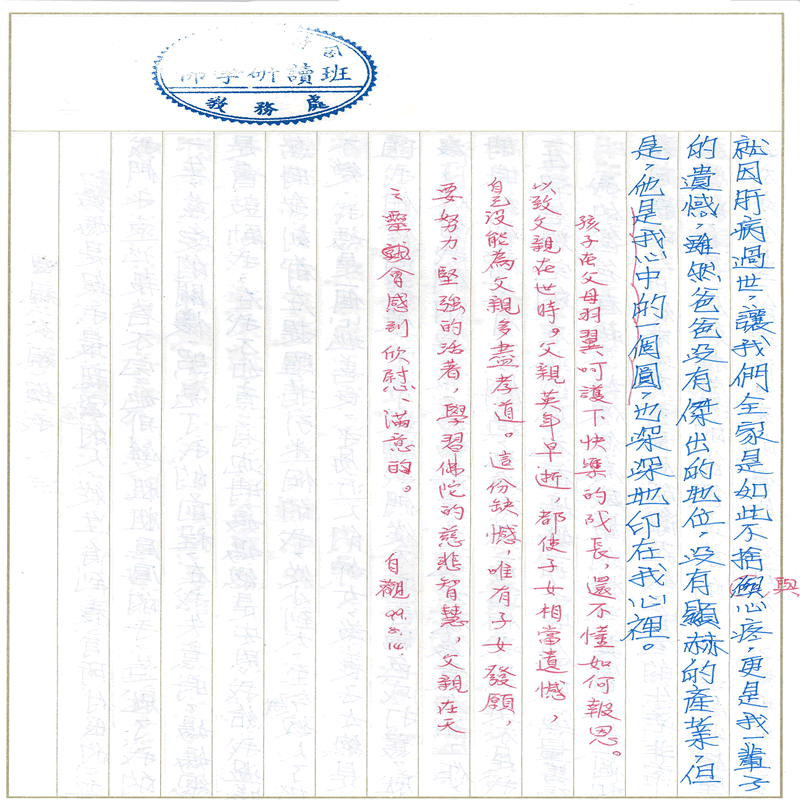 研讀班
教務處
就因肝病過世，讓我們全家是如些不捨與心疼，更是我一輩子
的遺憾，雖然爸爸沒有傑出的地位，沒有顯赫的產業，但
是，他是我心中的一個圓，也深深地印在我心裡。
孩子在父母羽翼呵護下快樂的成長，還不懂如何報恩。
以致父親在世時。父親英年早逝，都使子女相當遺憾，
自己沒能為父親多盡孝道。這份缺憾，唯有子女發願，
要努力、堅強的活著，學習佛陀的慈悲智慧，父親在天
之靈會感到欣慰、滿意的。
自觀 99.8.14.